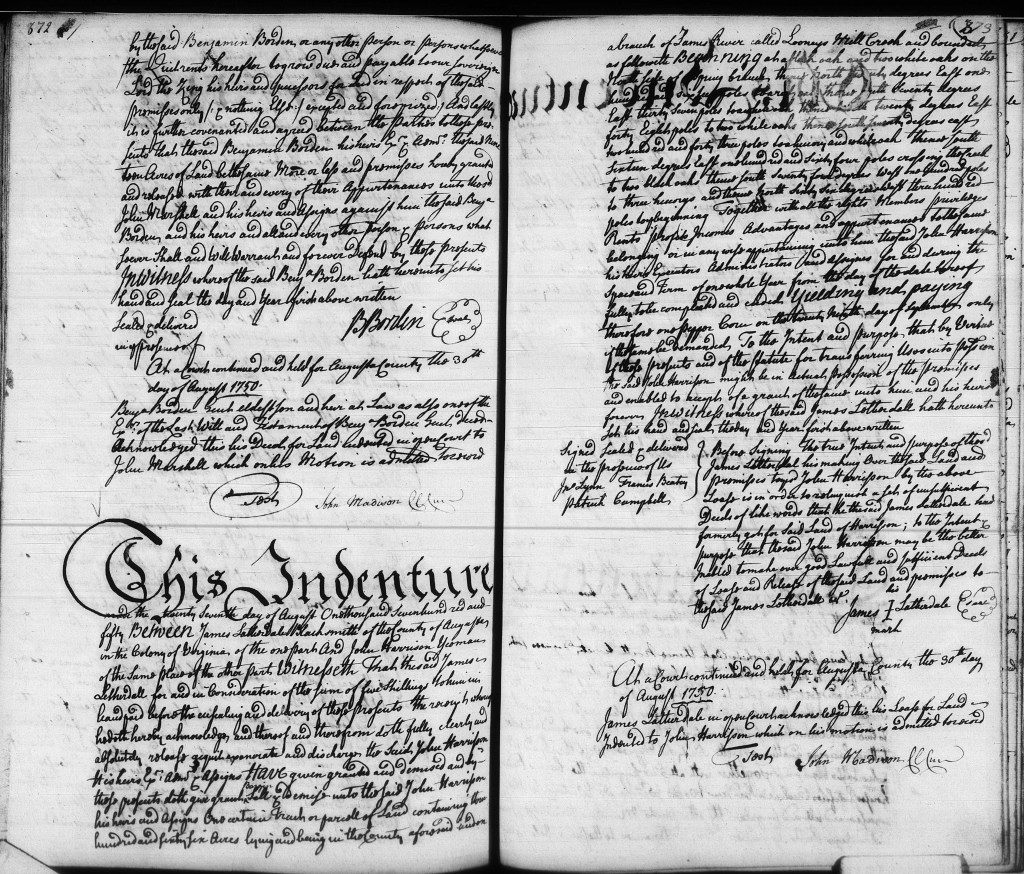 872
by the said Benjamin Borden, or any other person or persons whatsoever
the Quitrents hereafter to grow due and payable to our Sovereign
Lord the King his heirs and Successors for and in respect of the said
premises only (& nothing Else) Excepted and foreprized) And lastly
it is further covenanted and agreed between the parties to these pre-
sents that the said Benjamin Borden his heirs Exrs & Admrs the said
Acres of Land be the same More or less and premises hereby granted
and released with their and every of their Appurtenances unto the sd
John Marshell and his heirs and Assigns against him the said Benja
Borden and his heirs and all and every other person & persons what
soever Shall and Will Warrant and forever Defend by these presents
In Witness whereof the said Benja Borden hath hereunto set his
hand and Seal the day and Year first above written
Sealed & delivered
in ye presence of
B Borden Seal
At a Court continued and held for Augusta County the 30th
day of August 1750.
Benja Borden Gent eldest son and heir at Law as also one of the
Exrs of the Last Will and Testament of Benja Borden Gent, deced
Acknowledged this his Deed for Land indented in open court to
John Marshall which on his Motion is admitted to record
Test
John Madison Cl Cur
This Indenture
made the twenty Seventh day of August One thousand Seven hundred and
fifty Between James Latherdale Blacksmith of the County of Augusta
in the Colony of Virginia, of the one part And John Harrison Yeoman
of the same place of the other part Witnesseth That the said James
Letherdall for and in Consideration of the sum of five Shillings to him in
hand paid before the ensealing and delivery of these presents the receipt whereof
he doth hereby acknowledge and thereof and therefrom doth fully clearly and
absolutely release acquit exonerate and discharge the Said John Harrison
His heirs Exrs Admrs & Assigns Have given granted and demised and by
these presents doth give grant Sell & Demise unto the said John Harrison
his heirs and Assigns One certain tract or parcell of Land containing two
hundred and fifty six Acres lying and being in the County aforesaid under
873
a branch of James River called Looneys Mill Creek and bounded
as followeth Beginning at a black oak and two white oaks on the
North side of a Spring branch, thence North degrees East one
hundred and poles North Seventy degrees
East thirty Seven poles to North twenty degrees East
forty Eight poles to two white oaks thence South Seventy degrees east
two hundred and forty three poles to a hickory and white oak thence South
Sixteen degrees East one hundred and Sixty four poles crossing the creek
to two black oaks thence South Seventy four degrees West one Hundred poles
to three hickorys and thence North Sixty Six degrees West three hundred
poles to ye beginning Together with all the rights Members priviledges
Rents profits Incomes Advantages and appurtenances to the same
belonging or in any wise appurtaining unto him the said John Harrison
his heirs Executors Administrators and assigns for and during the
Space and Term of one whole Year from the day of the date hereof
fully to be compleated and ended Yielding and paying
therefore one pepper Corn on the twenty Ninth day of September only
if the same be demanded, To the Intent and purpose that by Virtue
of these presents and of the Statute for transferring Uses into possession
the said John Harrison might be in Actual possession of the premises
and enabled to accept of a grant of the same unto him and his heirs
forever In Witness whereof the said James Letherdall hath hereunto
Set his hand and seal, the day and Year first above written
Signed Sealed & delivered
in the presence of Us
Jno Lynn Francis Beaty
Patrick Campbell
Before Signing the true Intent and purpose of the sd
James Letherdal his making Over the said Land and
premises to ye sd John Harrisson by the above
Lease is in order to relinquish a Set of insufficient
Deeds of like words that the the said James Lathersdale has
formerly got for Said Land of Harrison; to the Intent &
purpose that the said John Harrisson may be the better
Inabled to make over good Lawfull and Sufficient Deeds
of Lease and Release of the said Land and premises to
the said James Lethersdale &c
his
James I Latherdale Seal
mark
At a Court continued and held for Augusta County the 30th day
of August 1750.
James Latherdale in open Court acknowledged this his Lease for Land
Indented to John Harrisson which on his motion is admitted to record
Test
John Madison Cl Cur